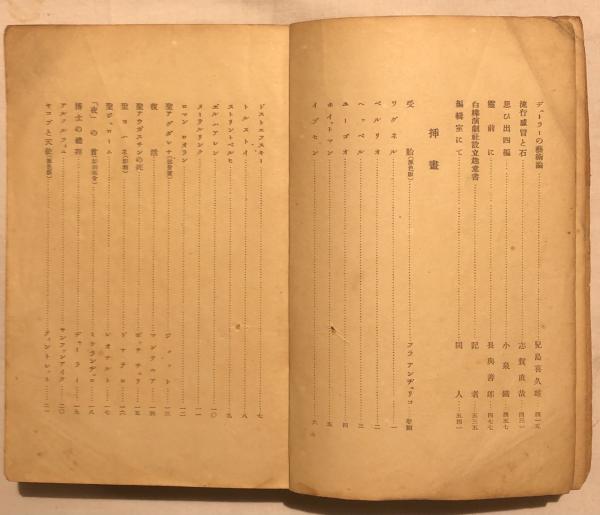 デューラーの藝術論 兒島喜久雄 四一五
流行感冒と石 志賀直哉 四三一
思ひ出四編 小泉鐵 四五七
靈前に 長與善郎 四七七
白樺演劇社設立趣意書 記者 五三五
編輯室にて 同人 五四一
挿畫
受胎(原色版) フラ アンヂェリコ 卷頭
ワグネル 一
ベルリオ 二
ヘッベル 三
ユーゴオ 四
ホイットマン 五
イプセン 六
ドストエフスキー 七
トルストイ 八
ストリントベルヒ 九
ヹルハアレン 一〇
メーテルリンク 一一
ロマン ロオラン 一二
聖マグダレナ ジョットー 一三
復活 マンテニア 一四
聖アウガスチンの死 ボッチチェリ 一五
聖ヨハネ ドナテロ 一六
聖ジェローム レオナルド 一七
「夜」の首 ミケランヂェロ 一八
博士の禮拜 デューラー 一九
アルノルフィニ ヤンファンアイク 二〇
ヤコブと天使(原色版) ティントレット 二一